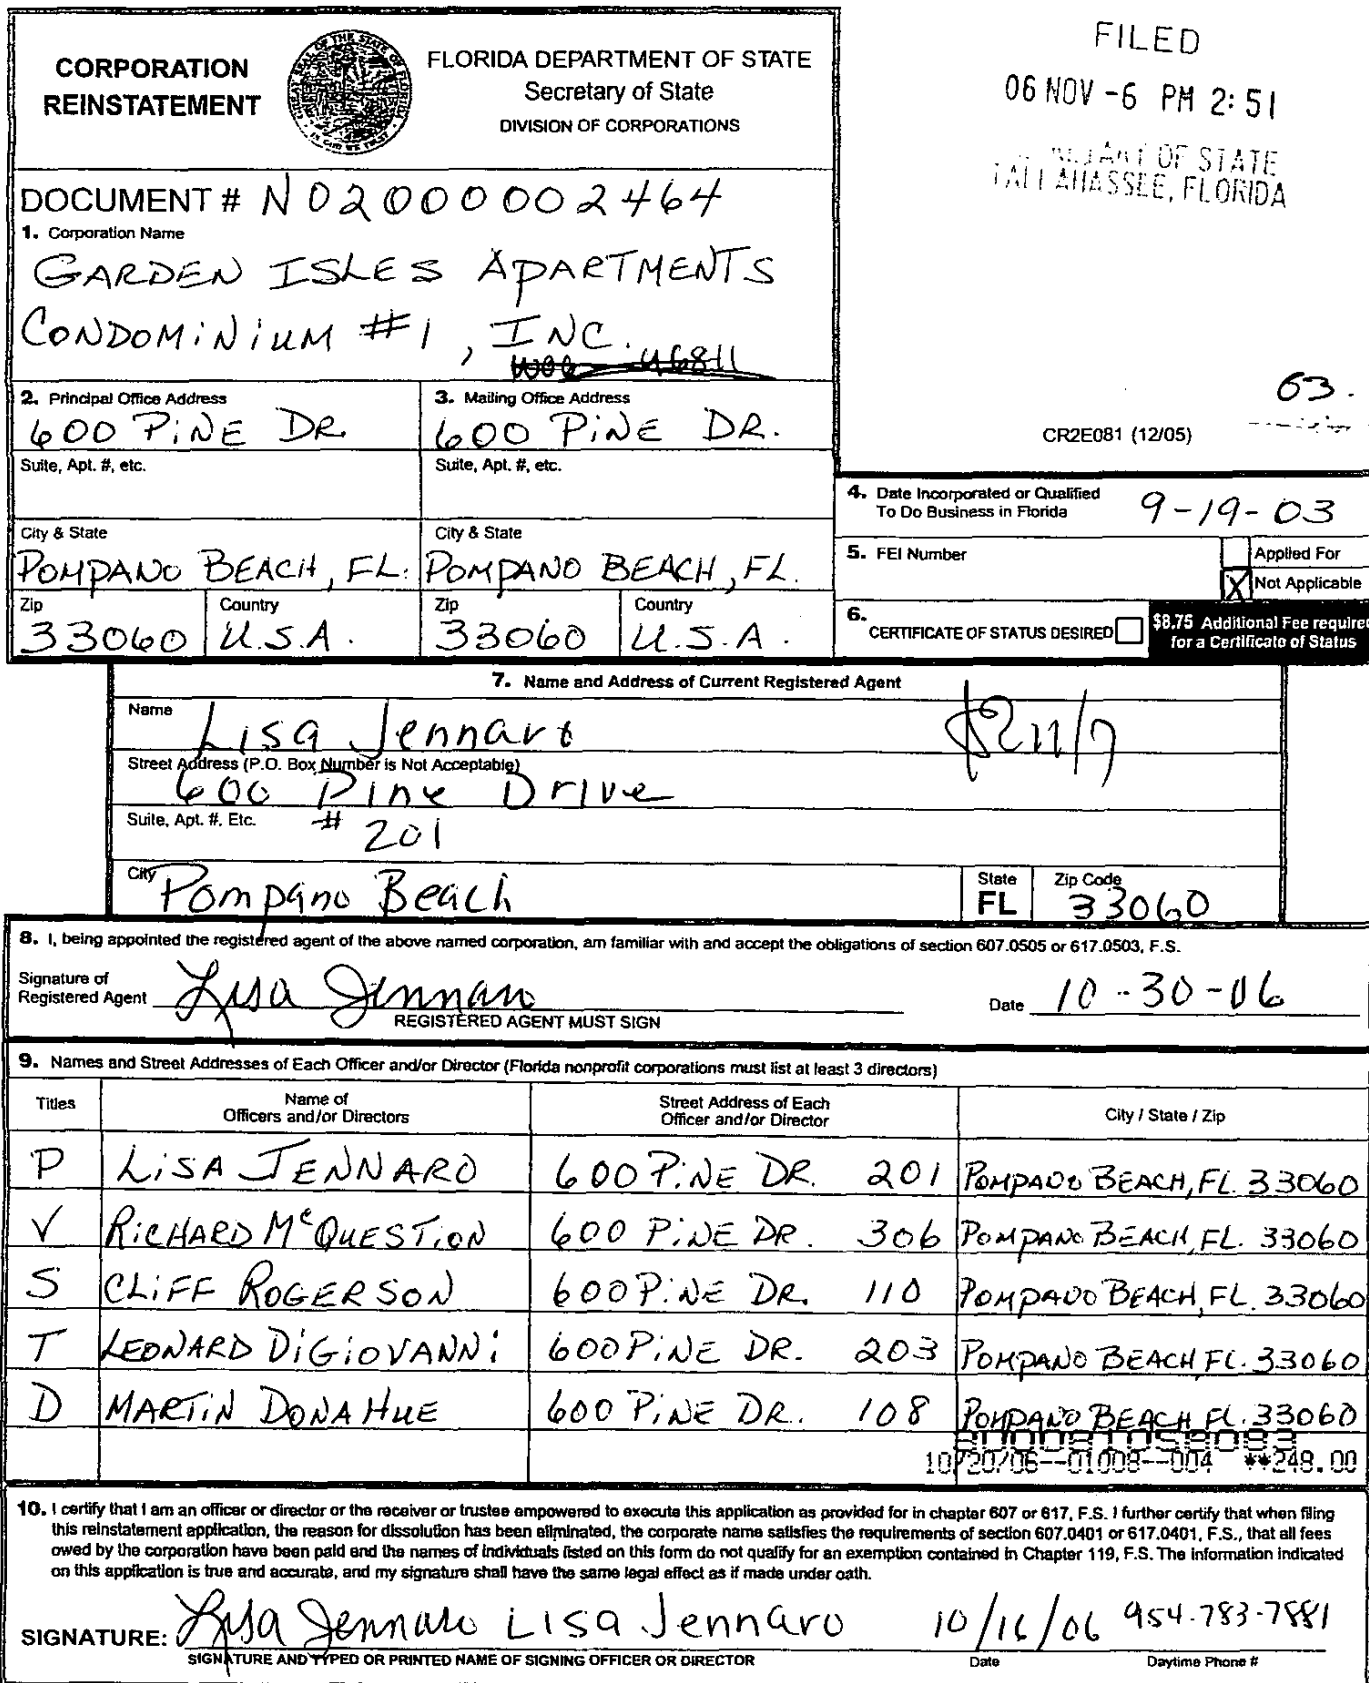 CORPORATION
REINSTATEMENT
FLORIDA DEPARTMENT OF STATE
Secretary of State
DIVISION OF CORPORATIONS
FILED
06 NOV -6 PM 2:51
OF STATE
TALLAHASSEE, FLORIDA
DOCUMENT # N02000002464
1. Corporation Name
GARDEN ISLES APARTMENTS
CONDOMINIUM #1, INC.
63.
CR2E081 (12/05)
2. Principal Office Address
600 PINE DR.
3. Mailing Office Address
600 PINE DR.
Suite, Apt. #, etc.
Suite, Apt. #, etc.
City & State
POMPANO BEACH, FL.
City & State
POMPANO BEACH, FL.
Zip
33060
Country
U.S.A.
Zip
33060
Country
U.S.A.
4. Date Incorporated or Qualified
To Do Business in Florida
9-19-03
5. FEI Number
Applied For
X Not Applicable
6. CERTIFICATE OF STATUS DESIRED
$8.75 Additional Fee require
for a Certificate of Status
7. Name and Address of Current Registered Agent
Name
Lisa Jennaro
Street Address (P.O. Box Number is Not Acceptable)
600 Pine Drive
Suite, Apt. #, Etc.
# 201
City
Pompano Beach
State
FL
Zip Code
33060
8. I, being appointed the registered agent of the above named corporation, am familiar with and accept the obligations of section 607.0505 or 617.0503, F.S.
Signature of
Registered Agent Lisa Jennaro
REGISTERED AGENT MUST SIGN
Date 10-30-06
9. Names and Street Addresses of Each Officer and/or Director (Florida nonprofit corporations must list at least 3 directors)
Titles
Name of
Officers and/or Directors
Street Address of Each
Officer and/or Director
City / State / Zip
P LISA JENNARO 600 PINE DR. 201 POMPANO BEACH, FL. 33060
V RICHARD McQUESTION 600 PINE DR. 306 POMPANO BEACH, FL. 33060
S CLIFF ROGERSON 600 PINE DR. 110 POMPANO BEACH, FL. 33060
T LEONARD DIGIOVANNI 600 PINE DR. 203 POMPANO BEACH FL. 33060
D MARTIN DONAHUE 600 PINE DR. 108 POMPANO BEACH FL. 33060
10/20/06--01008--004 **248.00
10. I certify that I am an officer or director or the receiver or trustee empowered to execute this application as provided for in chapter 607 or 617, F.S. I further certify that when filing
this reinstatement application, the reason for dissolution has been eliminated, the corporate name satisfies the requirements of section 607.0401 or 617.0401, F.S., that all fees
owed by the corporation have been paid and the names of individuals listed on this form do not qualify for an exemption contained in Chapter 119, F.S. The information indicated
on this application is true and accurate, and my signature shall have the same legal effect as if made under oath.
SIGNATURE: Lisa Jennaro Lisa Jennaro 10/16/06 954-783-7881
SIGNATURE AND TYPED OR PRINTED NAME OF SIGNING OFFICER OR DIRECTOR
Date
Daytime Phone #